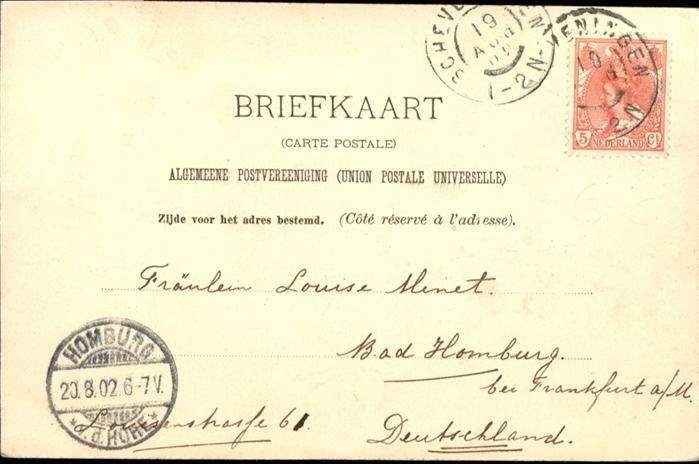 SCHEVENINGEN
19
AUG
1-2N
5 Ct
NEDERLAND
BRIEFKAART
(CARTE POSTALE)
ALGEMEENE POSTVEREENIGING (UNION POSTALE UNIVERSELLE)
Zijde voor het adres bestemd. (Côté réservé à l'adresse).
Fräulein Louise Minet.
Bad Homburg.
bei Frankfurt a/M.
Louisenstrasse 61
Deutschland.
HOMBURG
20.8.02.6-7V.
v.d.HÖHE